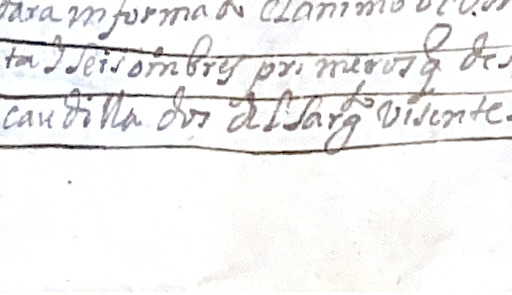 para informa de el animo de
ta d seis ombres primeros q des
caudilla dos del sargto visente